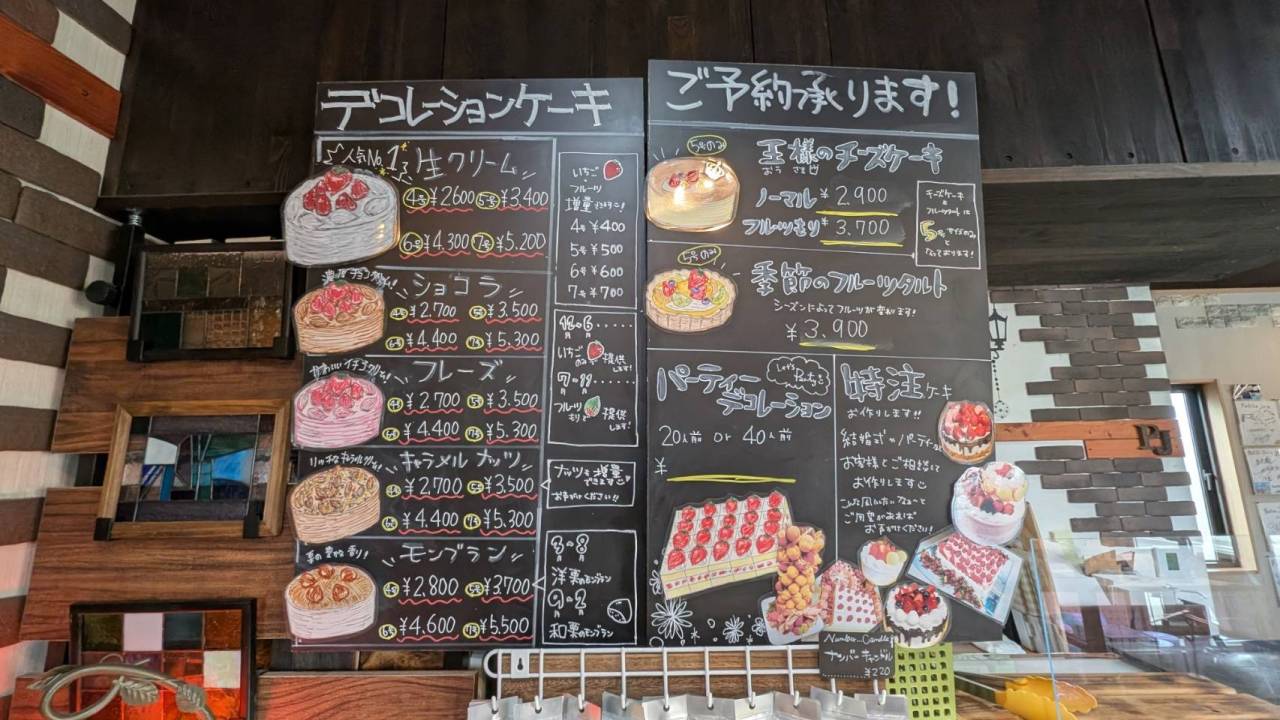 デコレーションケーキ
人気No.1
生クリーム
4号 ¥2600 5号 ¥3,400
6号 ¥4,300 7号 ¥5,200
ショコラ
4号 ¥2,700 5号 ¥3,500
6号 ¥4,400 7号 ¥5,300
フレーズ
4号 ¥2,700 5号 ¥3,500
6号 ¥4,400 7号 ¥5,300
キャラメルナッツ
4号 ¥2,700 5号 ¥3,500
6号 ¥4,400 7号 ¥5,300
モンブラン
4号 ¥2,800 5号 ¥3700
6号 ¥4,600 7号 ¥5,500
いちご
フルーツ
4号 ¥400
5号 ¥500
6号 ¥600
7号 ¥700
いちご
のみ 提供
します!
フルーツ
もり 提供
します!
ナッツを増量
できます
お声がけください!!
洋栗のモンブラン
和栗のモンブラン
ご予約承ります!
5号のみ
王様のチーズケーキ
おう さま
ノーマル ¥2.900
フルーツもり ¥3.700
チーズケーキ
フルーツタルトは
5号サイズのみ
と
なっております!
5号のみ
季節のフルーツタルト
シーズンによってフルーツが変わります!
¥3.900
パーティー
デコレーション
Let's Party
20人前 or 40人前
¥
特注ケーキ
お作りします!!
結婚式やパーティなど
お客様とご相談して
お作りします
ご要望があれば
お声がけください!
Number Candle
ナンバーキャンドル
¥220
PJ